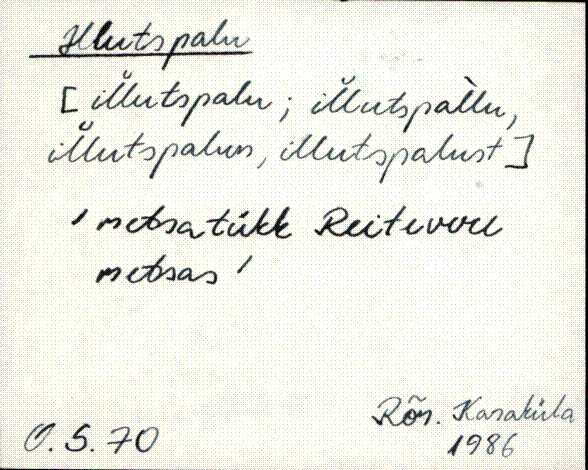 Illutspalu
[illutspalu; illutspàllu,
illutspalun, illutspalust]
'metsatükk Reitevere
metsas'
O. S. 70
Rõn. Karaküla
1986